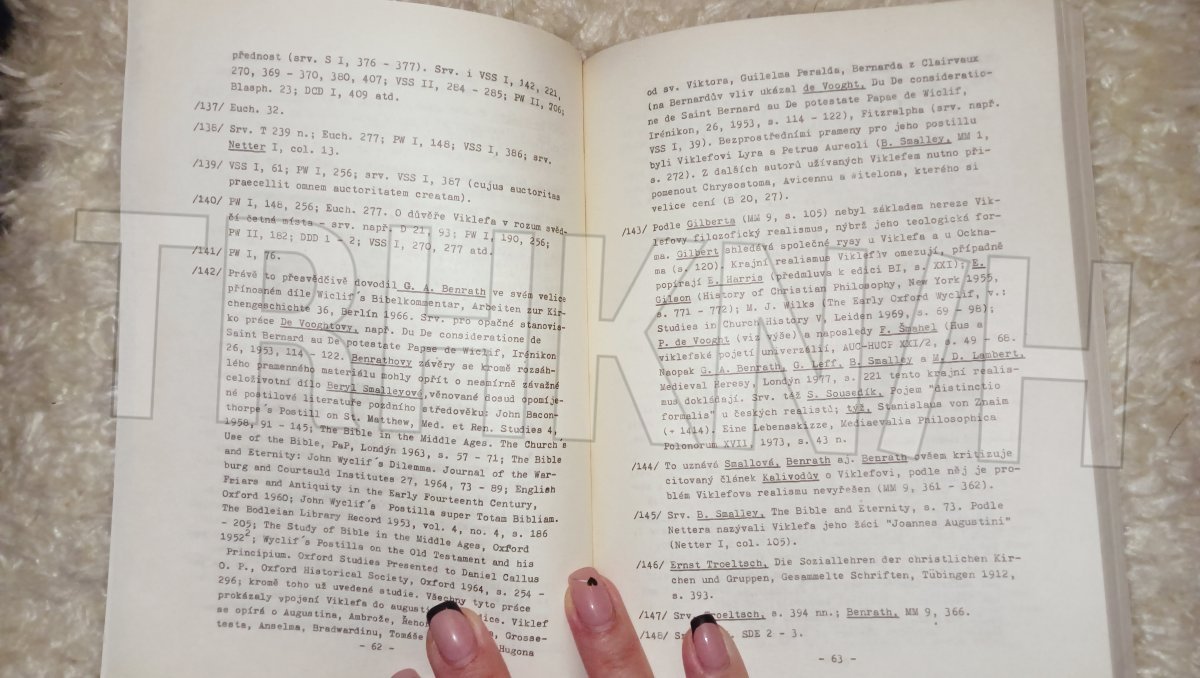 přednost (srv. S I, 376 - 377). Srv. i VSS I, 142, 221,
270, 369 - 370, 380, 407; VSS II, 284 - 285; PW II, 206;
Blasph. 23; DCD I, 409 atd.
/137/ Euch. 32.
/138/ Srv. T 239 n.; Euch. 277; PW I, 148; VSS I, 386; srv.
Netter I, col. 13.
/139/ VSS I, 61; PW I, 256; srv. VSS I, 387 (cujus auctoritas
praecellit omnem auctoritatem creatam).
/140/ PW I, 148, 256; Euch. 277. O důvěře Viklefa v rozum svěd-
čí četná místa - srv. např. D 21, 93; PW I, 190, 256;
PW II, 182; DDD 1 - 2; VSS I, 270, 277 atd.
/141/ PW I, 76.
/142/ Právě to přesvědčivě dovodil G. A. Benrath ve svém velice
přínosném díle Wiclif´s Bibelkommentar, Arbeiten zur Kir-
chengeschichte 36, Berlín 1966. Srv. pro opačné stanovis-
ko práce De Vooghtovy, např. Du De consideratione de
Saint Bernard au De potestate Papae de Wiclif, Irénikon
26, 1953, 114 - 122. Benrathovy závěry se kromě rozsáh-
lého pramenného materiálu mohly opřít o nesmírně závažné
celoživotní dílo Beryl Smalleyové, věnované dosud opomíje-
né postilové literatuře pozdního středověku: John Bacon-
thorpe´s Postill on St. Matthew, Med. et Ren. Studies 4,
1958, 91 - 145; The Bible in the Middle Ages. The Church´s
Use of the Bible, PaP, Londýn 1963, s. 57 - 71; The Bible
and Eternity: John Wyclif´s Dilemma. Journal of the War-
burg and Courtauld Institutes 27, 1964, 73 - 89; English
Friars and Antiquity in the Early Fourteenth Century,
Oxford 1960; John Wyclif´s Postilla super Totam Bibliam.
The Bodleian Library Record 1953, vol. 4, no. 4, s. 186
- 205; The Study of Bible in the Middle Ages, Oxford
1952²; Wyclif´s Postilla on the Old Testament and his
Principium. Oxford Studies Presented to Daniel Callus
O. P., Oxford Historical Society, Oxford 1964, s. 254 -
296; kromě toho už uvedené studie. Všechny tyto práce
prokázaly vpojení Viklefa do Viklef
se opírá o Augustina, Ambrože, Grosse-
testa, Anselma, Bradwardinu, Tomáše Hugona
- 62 -
od sv. Viktora, Guilelma Peralda, Bernarda z Clairvaux
(na Bernardův vliv ukázal de Vooght, Du De consideratio-
ne de Saint Bernard au De potestate Papae de Wiclif,
Irénikon, 26, 1953, s. 114 - 122), Fitzralpha (srv. např.
VSS I, 39). Bezprostředními prameny pro jeho postillu
byli Viklefovi Lyra a Petrus Aureoli (B. Smalley, MM 1,
s. 272). Z dalších autorů užívaných Viklefem nutno při-
pomenout Chrysostoma, Avicennu a Witelona, kterého si
velice cení (B 20, 27).
/143/ Podle Gilberta (MM 9, s. 105) nebyl základem hereze Vik-
lefovy filozofický realismus, nýbrž jeho teologická for-
ma. Gilbert shledává společné rysy u Viklefa a u Ockha-
ma (s. 120). Krajní realismus Viklefův omezují, případně
popírají E. Harris (předmluva k edici BI, s. XXI); E.
Gilson (History of Christian Philosophy, New York 1955,
s. 771 - 772); M. J. Wilks (The Early Oxford Wyclif, v.:
Studies in Church History V, Leiden 1969, s. 69 - 98);
P. de Vooght (viz výše) a naposledy F. Šmahel (Hus a
viklefské pojetí univerzálií, AUC-HUCP XXI/2, s. 49 - 68.
Naopak G. A. Benrath, G. Leff, B. Smalley a M. D. Lambert,
Medieval Heresy, Londýn 1977, s. 221 tento krajní realis-
mus dokládají. Srv. též S. Sousedík, Pojem "distinctio
formalis" u českých realistů; týž, Stanislaus von Znaim
(+ 1414). Eine Lebensskizze, Mediaevalia Philosophica
Polonorum XVII, 1973, s. 43 n.
/144/ To uznává Smallová, Benrath aj. Benrath ovšem kritizuje
citovaný článek Kalivodův o Viklefovi, podle něj je pro-
blém Viklefova realismu nevyřešen (MM 9, 361 - 362).
/145/ Srv. B. Smalley, The Bible and Eternity, s. 73. Podle
Nettera nazývali Viklefa jeho žáci "Joannes Augustini"
(Netter I, col. 105).
/146/ Ernst Troeltsch, Die Soziallehren der christlichen Kir-
chen und Gruppen, Gesammelte Schriften, Tübingen 1912,
s. 393.
/147/ Srv. Troeltsch, s. 394 nn.; Benrath, MM 9, 366.
/148/ SDE 2 - 3.
- 63 -
TRHKNIH